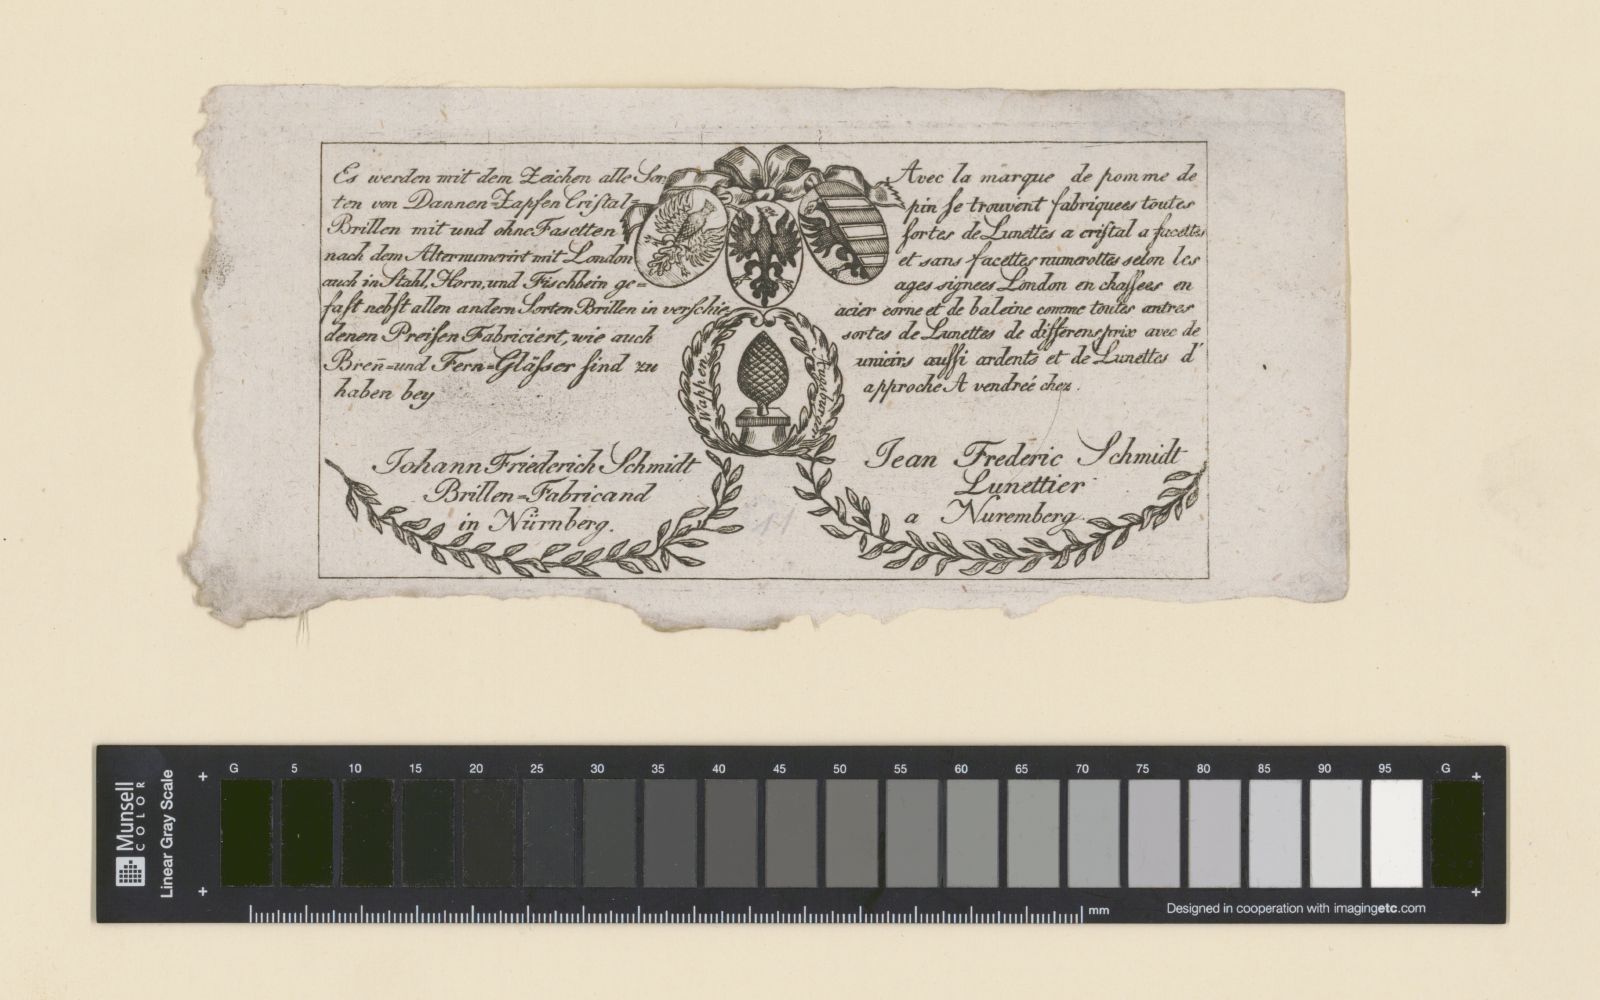 Es werden mit dem Zeichen alle Sor
ten von Dannen-Zapfen Cristal=
Brillen mit und ohne Fasetten
nach dem Alter numerirt mit London
auch in Stahl, Horn, und Fischbein ge=
faſt nebſt allen andern Sorten Brillen in verſchie
denen Preiſen Fabriciert, wie auch
Breñ=und Fern=Gläſser ſind zu
haben bey
Johann Friederich Schmidt
Brillen=Fabricand
in Nürnberg.
Wappen
Augsburger
Avec la marque de pomme de
pin ſe trouvent fabriquees toutes
ſortes de Lunettes a criſtal a facettes
et sans facettes numerottes selon les
ages signees London en chaſſees en
acier corne et de baleine comme toutes autres
sortes de Lunettes de differens prix avec de
auſſi ardents et de Lunettes d'
approche A vendreé chez.
Jean Frederic Schmidt
Lunettier
a Nuremberg.
Munsell
COLOR
Linear Gray Scale
G 5 10 15 20 25 30 35 40 45 50 55 60 65 70 75 80 85 90 95 G
mm
Designed in cooperation with imagingetc.com